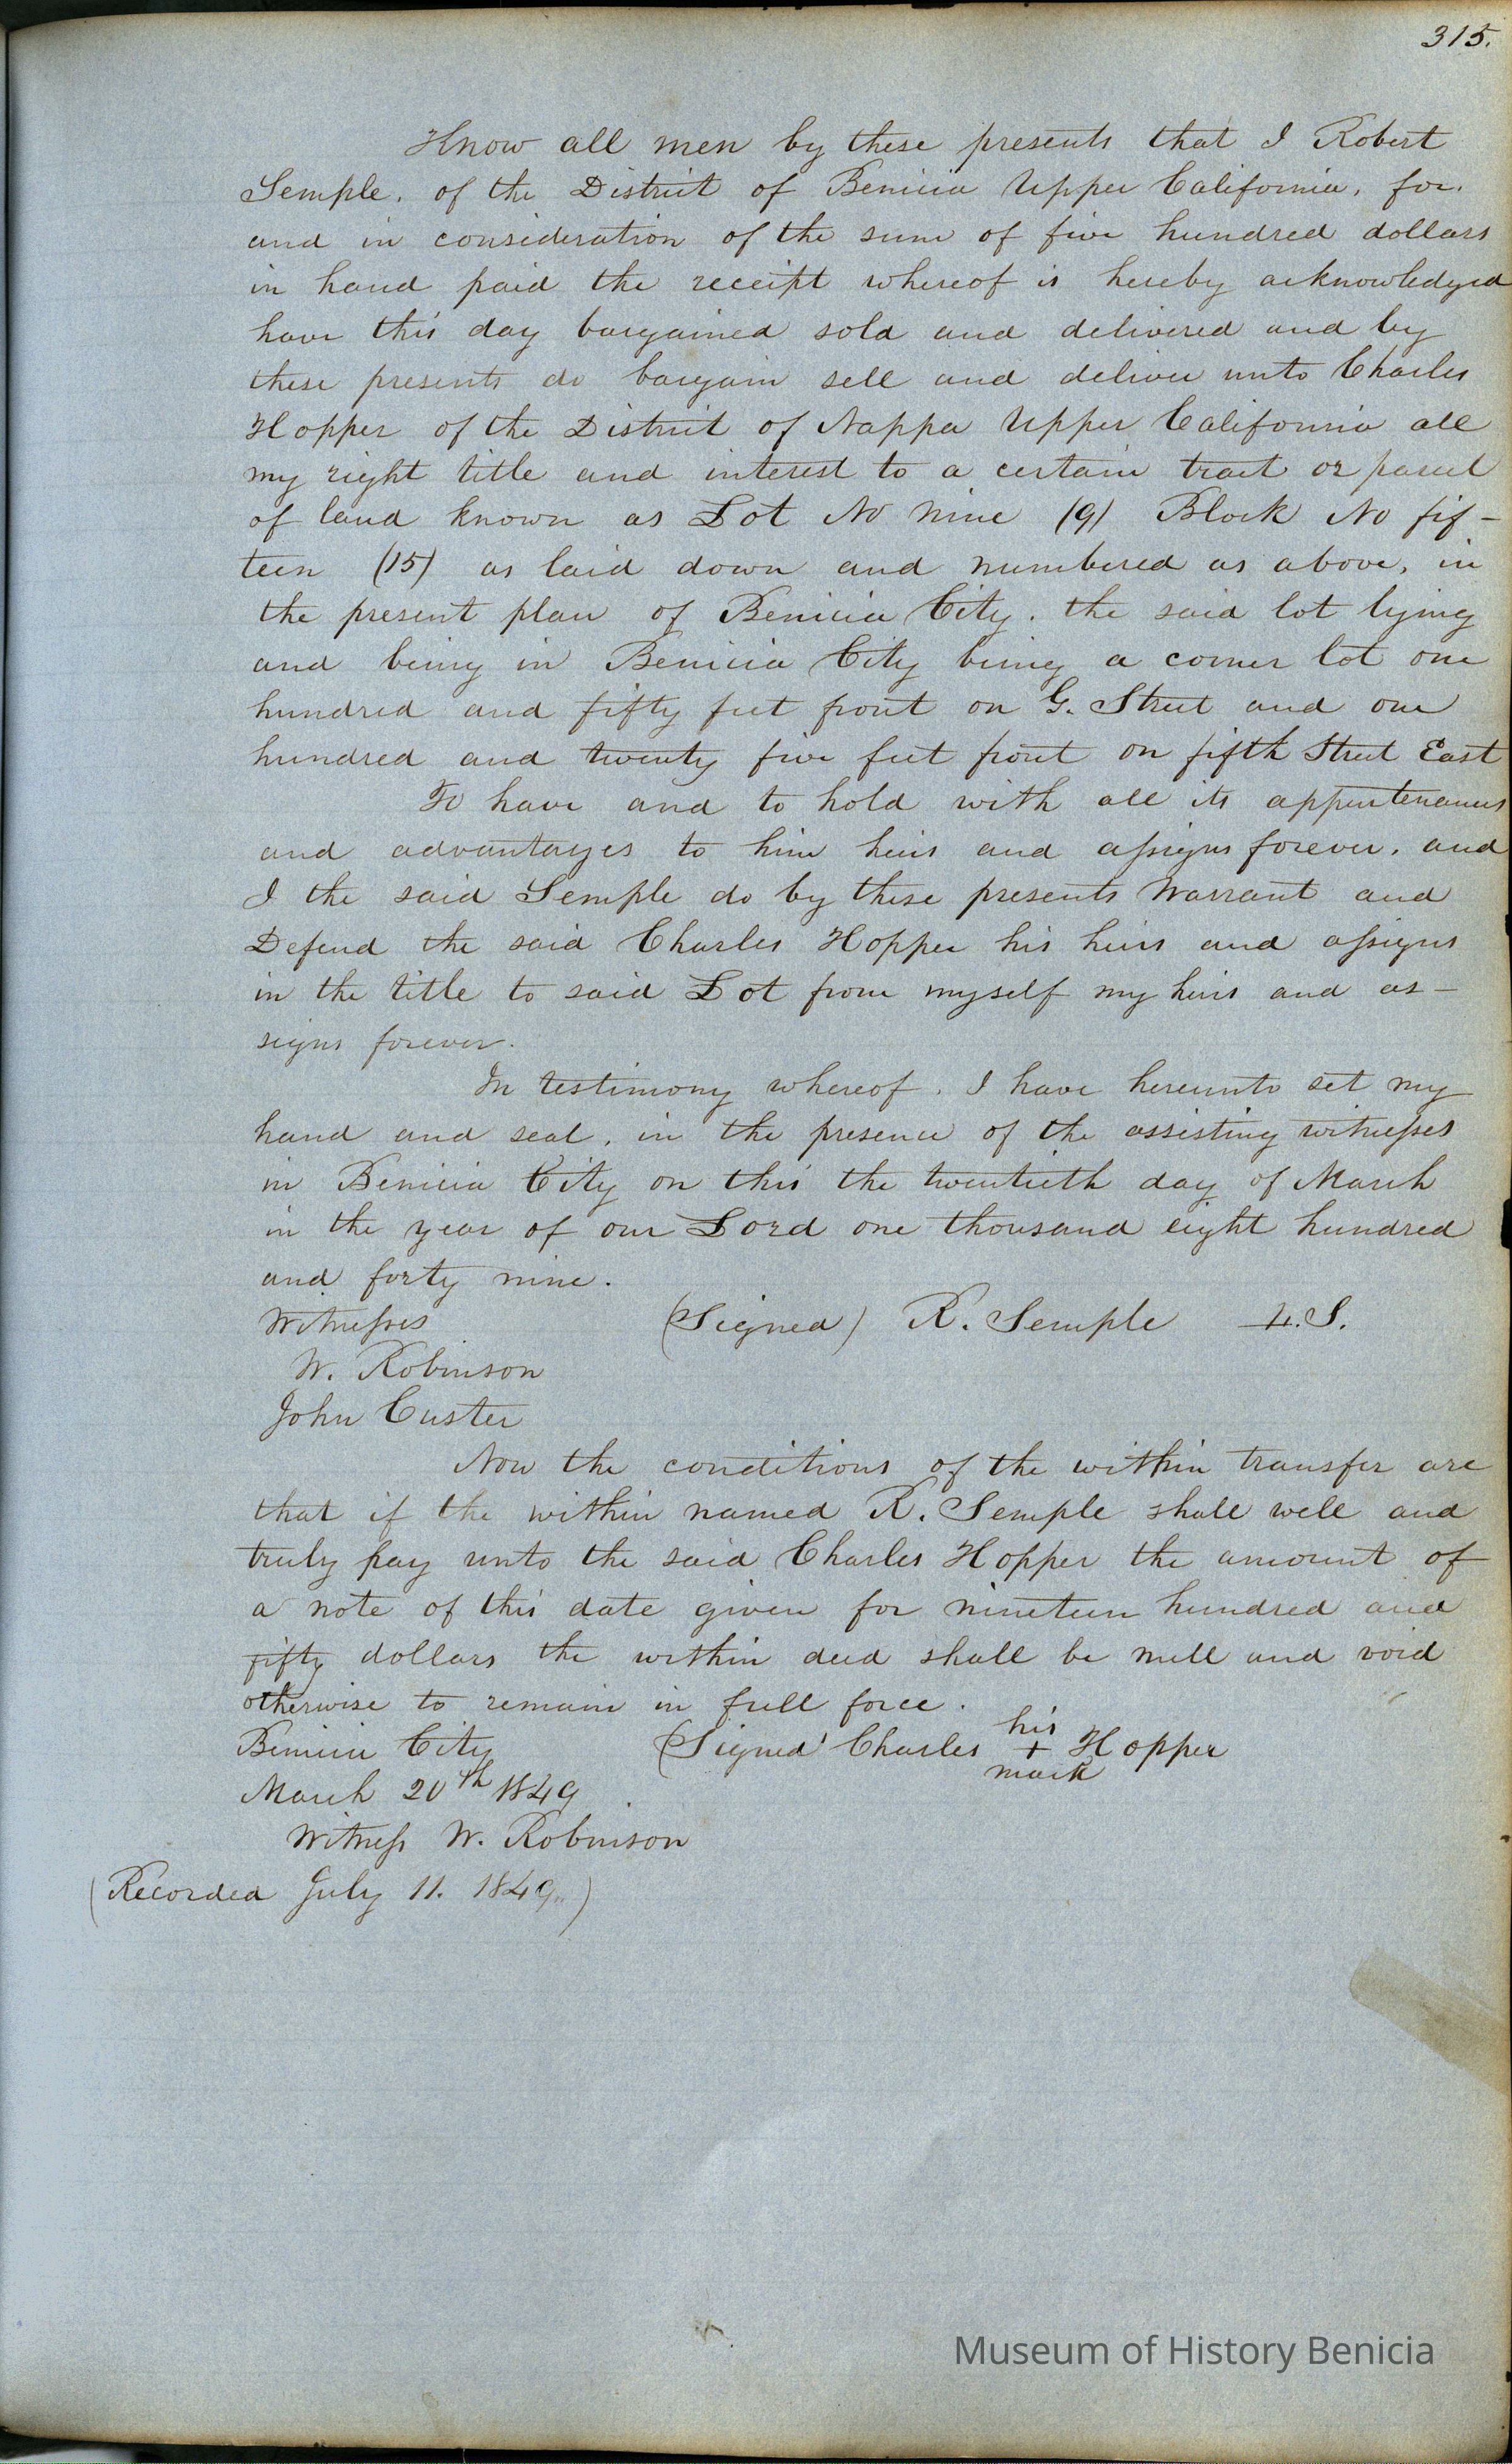 315.
Know all men by these presents that I Robert
Semple. of the District of Benicia Upper California, for.
and in consideration of the sum of five hundred dollars
in hand paid the receipt whereof is hereby acknowledged
have this day bargained sold and delivered and by
these presents do bargain sell and deliver unto Charles
Hopper of the District of Nappa Upper California all
my right title and interest to a certain tract or parcel
of land known as Lot No nine (9) Block No fif-
teen (15) as laid down and numbered as above, in
the present plan of Benicia City. the said lot lying
and being in Benicia City being a corner lot one
hundred and fifty feet front on G. Street and one
hundred and twenty five feet front on fifth Street East
To have and to hold with all its appurtenances
and advantages to him heirs and assigns forever. and
I the said Semple do by these presents Warrant and
Defend the said Charles Hopper his heirs and assigns
in the title to said Lot from myself my heirs and as-
signs forever.
In testimony whereof. I have hereunto set my
hand and seal, in the presence of the assisting witnesses
in Benicia City on this the twentieth day of March
in the year of our Lord one thousand eight hundred
and forty nine.
Witnesses (Signed) R. Semple L.S.
W. Robinson
John Custer
Now the conditions of the within transfer are
that if the within named R. Semple shall well and
truly pay unto the said Charles Hopper the amount of
a note of this date given for nineteen hundred and
fifty dollars the within deed shall be null and void
otherwise to remain in full force.
Benicia City (Signed) Charles his + mark Hopper
March 20th 1849
Witness W. Robinson
(Recorded July 11. 1849.)
Museum of History Benicia